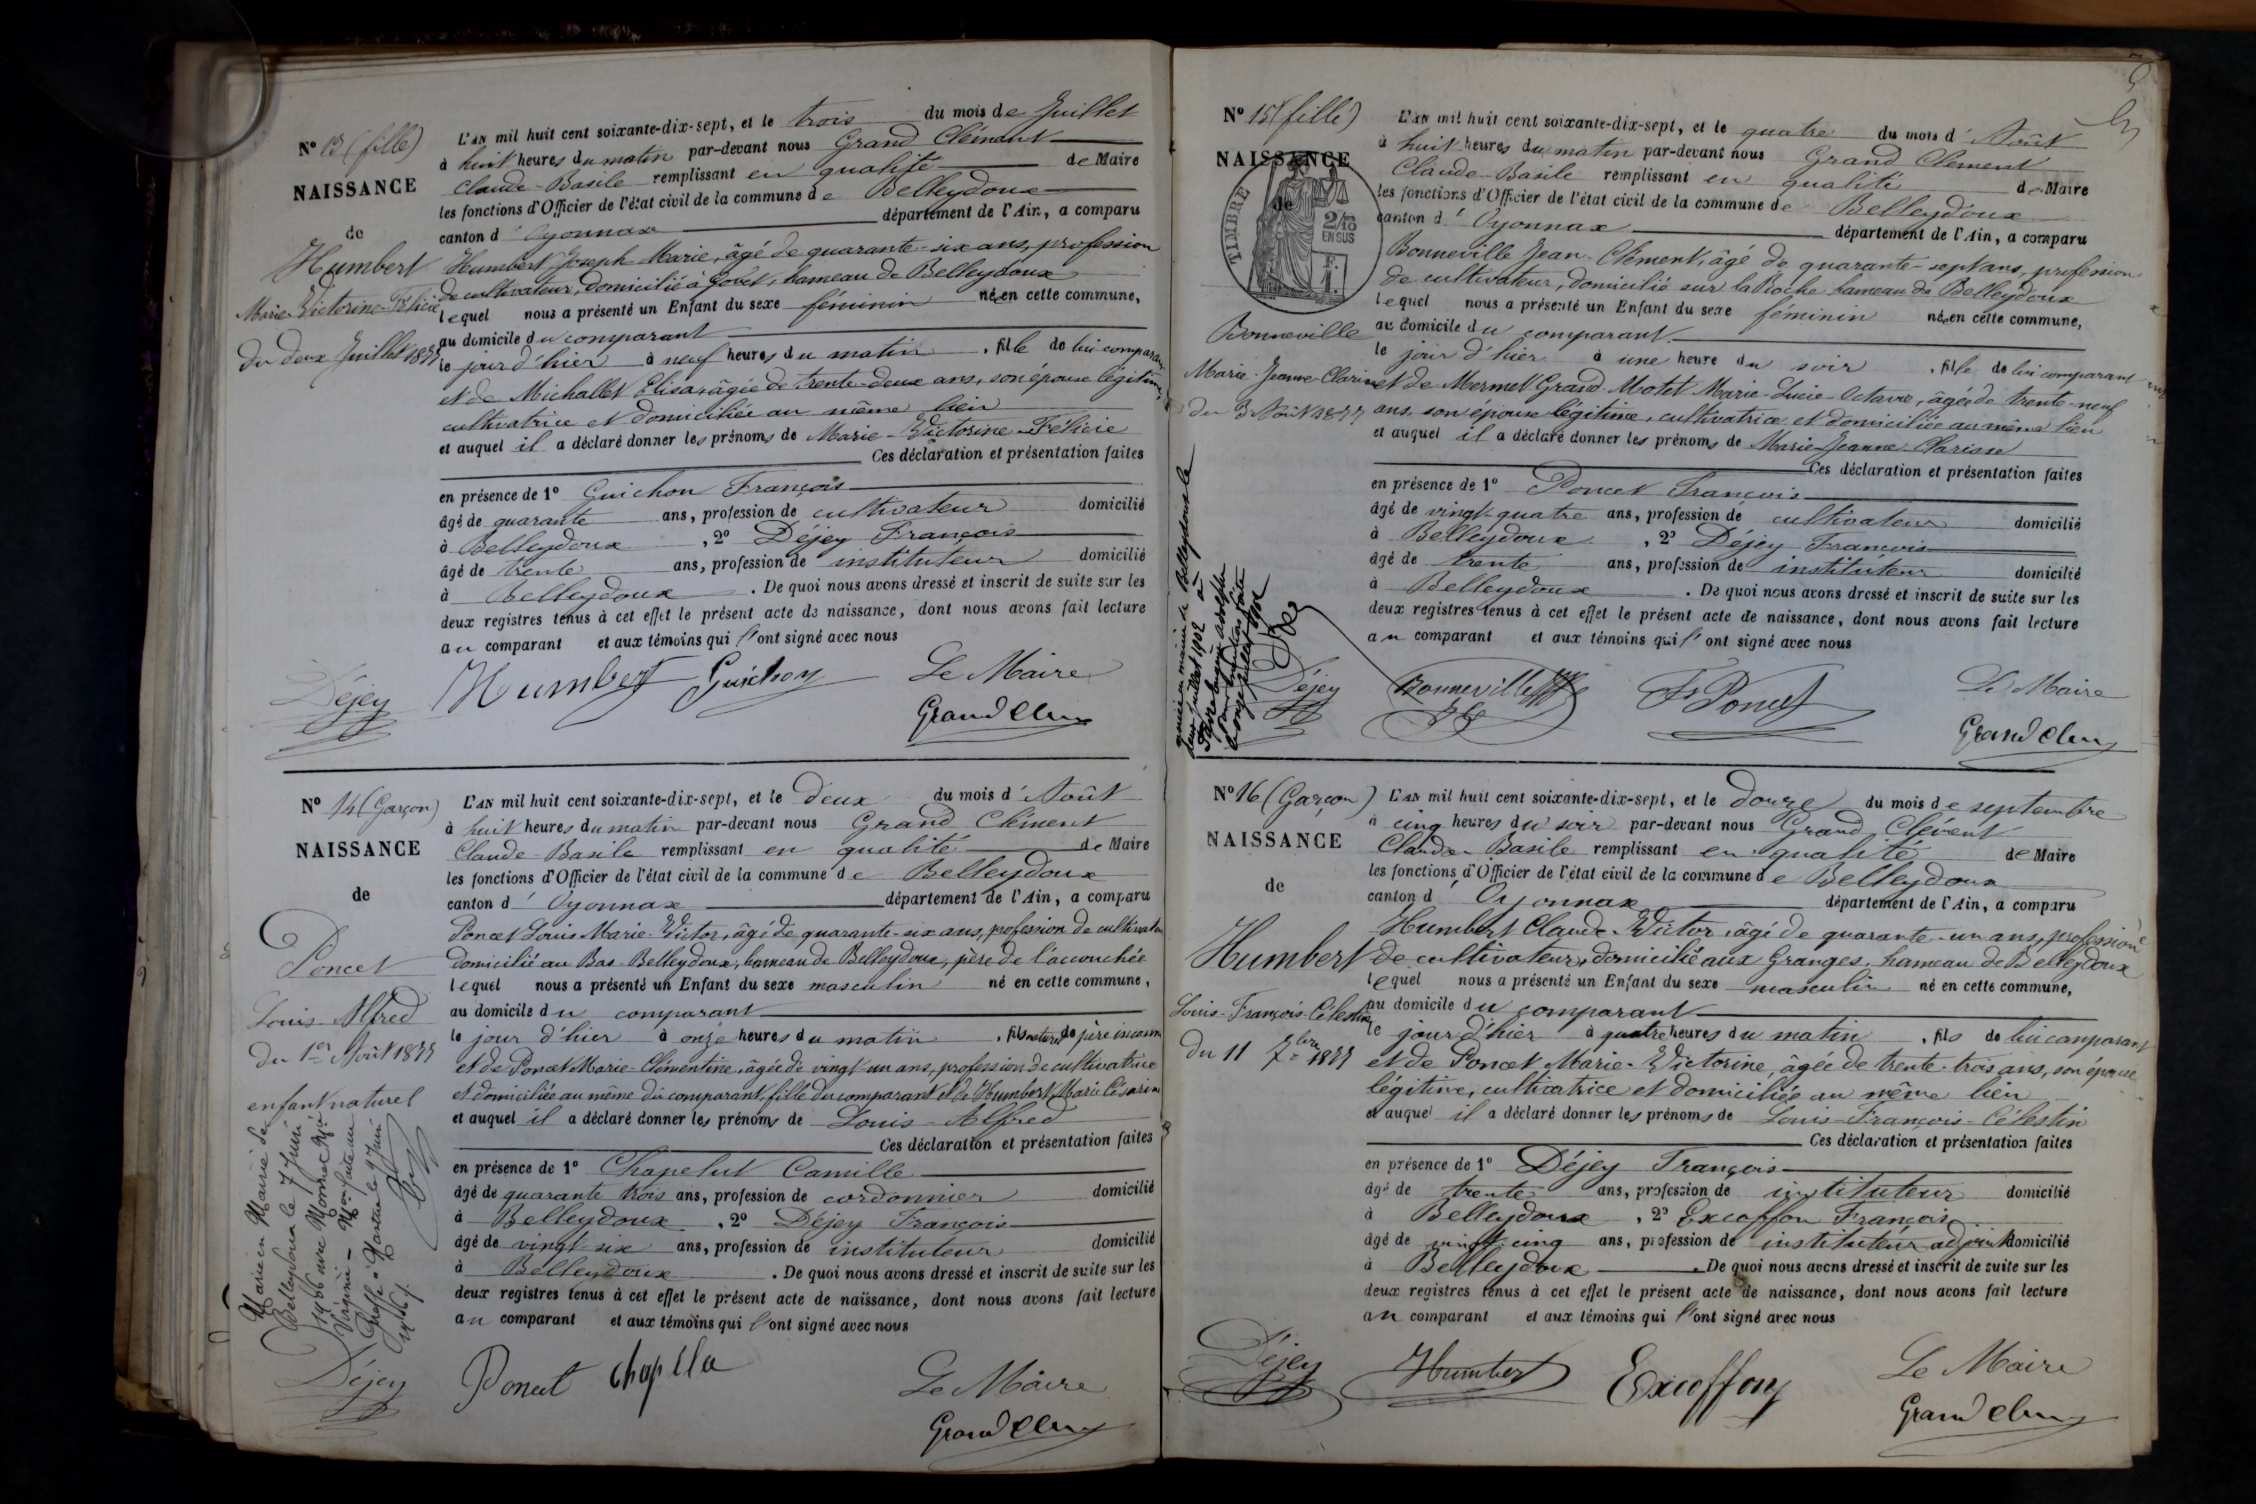 Nº 13 (fille)
NAISSANCE
de
Humbert
Marie-Victorine-Félicie
du deux Juillet 1877
L'AN mil huit cent soixante-dix-sept, et le trois du mois de Juillet
à huit heures du matin par-devant nous Grand Clément
Claude-Basile remplissant en qualité de Maire
les fonctions d'Officier de l'état civil de la commune de Belleydoux
canton d'Oyonnax département de l'Ain, a comparu
Humbert Joseph Marie, âgé de quarante-six ans, profession
de cultivateur, domicilié à Gobet, hameau de Belleydoux
lequel nous a présenté un Enfant du sexe féminin née en cette commune,
au domicile du comparant
le jour d'hier à neuf heures du matin, fille de lui comparant
et de Michallet Elisa, âgée de trente-deux ans, son épouse légitime
cultivatrice et domiciliée au même lieu
et auquel il a déclaré donner les prénoms de Marie-Victorine-Félicie
Ces déclaration et présentation faites
en présence de 1º Guichon François
âgé de quarante ans, profession de cultivateur domicilié
à Belleydoux, 2º Déjey François
âgé de trente ans, profession de instituteur domicilié
à Belleydoux. De quoi nous avons dressé et inscrit de suite sur les
deux registres tenus à cet effet le présent acte de naissance, dont nous avons fait lecture
au comparant et aux témoins qui l'ont signé avec nous
Déjey Humbert Guichon Le Maire
Grand Clem
Nº 14 (Garçon)
NAISSANCE
de
Poncet
Louis-Alfred
du 1er Août 1877
enfant naturel
Marié en Mairie de
Belleydoux le 7 Juin
1906 avec Mermet
Virginie
L'AN mil huit cent soixante-dix-sept, et le deux du mois d'Août
à huit heures du matin par-devant nous Grand Clément
Claude-Basile remplissant en qualité de Maire
les fonctions d'Officier de l'état civil de la commune de Belleydoux
canton d'Oyonnax département de l'Ain, a comparu
Poncet Louis Marie-Victor, âgé de quarante-six ans, profession de cultivateur
domicilié au Bas-Belleydoux, hameau de Belleydoux, père de l'accouchée
lequel nous a présenté un Enfant du sexe masculin né en cette commune,
au domicile du comparant
le jour d'hier à onze heures du matin, fils naturel de père inconnu
et de Poncet Marie-Clémentine, âgée de vingt-un ans, profession de cultivatrice
et domiciliée au même du comparant, fille du comparant et de Humbert Marie Césarine
et auquel il a déclaré donner les prénoms de Louis-Alfred
Ces déclaration et présentation faites
en présence de 1º Chapelut Camille
âgé de quarante trois ans, profession de cordonnier domicilié
à Belleydoux, 2º Déjey François
âgé de vingt-six ans, profession de instituteur domicilié
à Belleydoux. De quoi nous avons dressé et inscrit de suite sur les
deux registres tenus à cet effet le présent acte de naissance, dont nous avons fait lecture
au comparant et aux témoins qui l'ont signé avec nous
Déjey Poncet Le Maire
Grand Clem
Nº 15 (fille)
NAISSANCE
de
TIMBRE
2/10
EN SUS
Bonneville
Marie-Jeanne-Clarisse
du 3 Août 1877
L'AN mil huit cent soixante-dix-sept, et le quatre du mois d'Août
à huit heures du matin par-devant nous Grand Clément
Claude-Basile remplissant en qualité de Maire
les fonctions d'Officier de l'état civil de la commune de Belleydoux
canton d'Oyonnax département de l'Ain, a comparu
Bonneville Jean-Clément, âgé de quarante-sept ans, profession
de cultivateur, domicilié sur la Roche hameau de Belleydoux
lequel nous a présenté un Enfant du sexe féminin née en cette commune,
au domicile du comparant
le jour d'hier à une heure du soir, fille de lui comparant
et de Mermet Grand-Motet Marie-Lucie-Octavie, âgée de trente-neuf
ans, son épouse légitime, cultivatrice et domiciliée au même lieu
et auquel il a déclaré donner les prénoms de Marie-Jeanne-Clarisse
Ces déclaration et présentation faites
en présence de 1º Poncet François
âgé de vingt-quatre ans, profession de cultivateur domicilié
à Belleydoux, 2º Déjey François
âgé de trente ans, profession de instituteur domicilié
à Belleydoux. De quoi nous avons dressé et inscrit de suite sur les
deux registres tenus à cet effet le présent acte de naissance, dont nous avons fait lecture
au comparant et aux témoins qui l'ont signé avec nous
Déjey Bonneville F. Poncet Le Maire
Grand Clem
Nº 16 (Garçon)
NAISSANCE
de
Humbert
Louis-François-Célestin
du 11 7bre 1877
L'AN mil huit cent soixante-dix-sept, et le douze du mois de septembre
à cinq heures du soir par-devant nous Grand Clément
Claude-Basile remplissant en qualité de Maire
les fonctions d'Officier de l'état civil de la commune de Belleydoux
canton d'Oyonnax département de l'Ain, a comparu
Humbert Claude-Victor, âgé de quarante-un ans, profession
de cultivateur, domicilié aux Granges, hameau de Belleydoux
lequel nous a présenté un Enfant du sexe masculin né en cette commune,
au domicile du comparant
le jour d'hier à quatre heures du matin, fils de lui comparant
et de Poncet Marie-Victorine, âgée de trente-trois ans, son épouse
légitime, cultivatrice et domiciliée au même lieu
et auquel il a déclaré donner les prénoms de Louis-François-Célestin
Ces déclaration et présentation faites
en présence de 1º Déjey François
âgé de trente ans, profession de instituteur domicilié
à Belleydoux, 2º Excoffon François
âgé de vingt-cinq ans, profession de instituteur adjoint domicilié
à Belleydoux. De quoi nous avons dressé et inscrit de suite sur les
deux registres tenus à cet effet le présent acte de naissance, dont nous avons fait lecture
au comparant et aux témoins qui l'ont signé avec nous
Déjey Humbert Excoffon Le Maire
Grand Clem